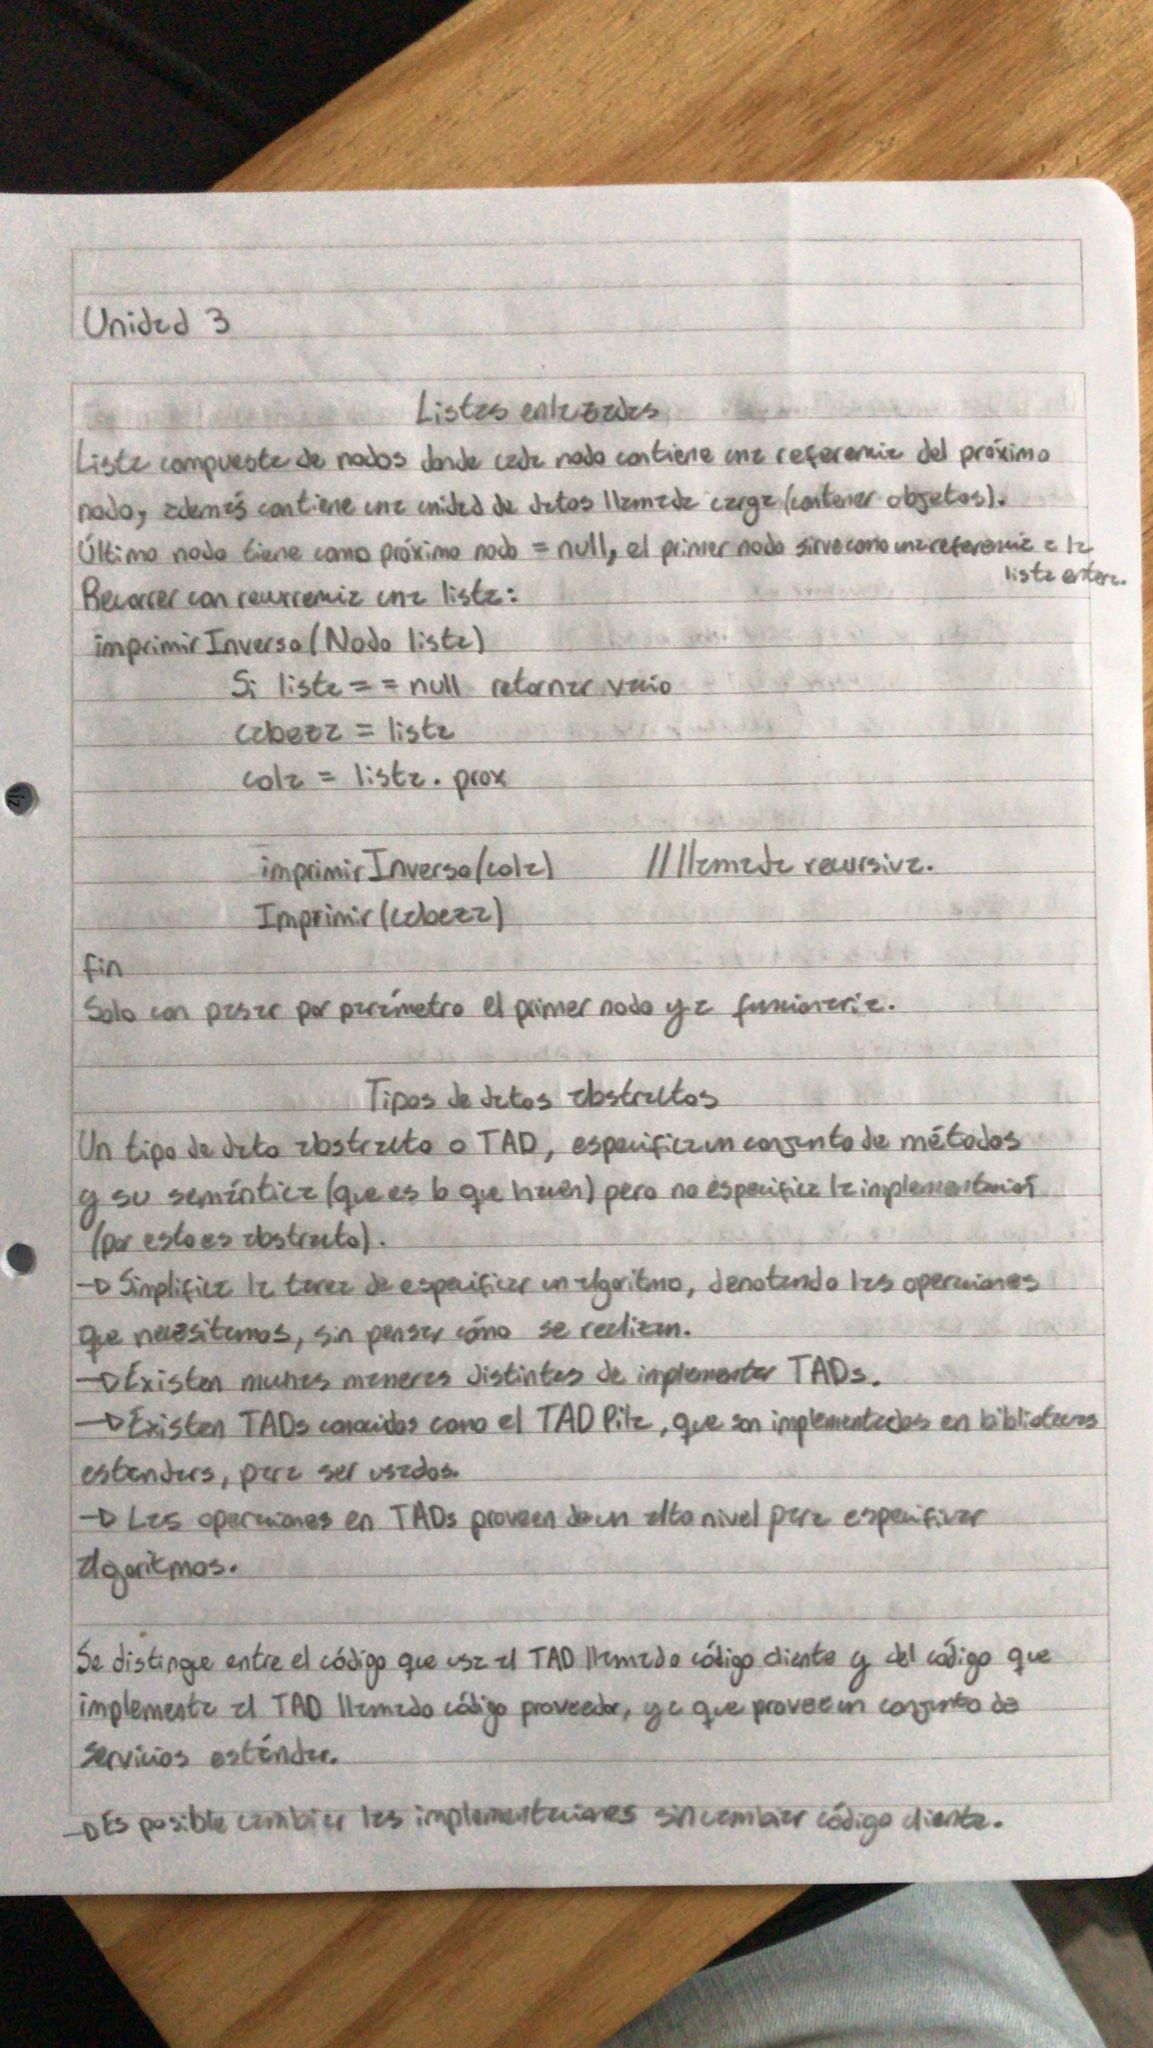 Unidad 3
Listas enlazadas
Lista compuesta de nodos donde cada nodo contiene una referencia del próximo
nodo, además contiene una unidad de datos llamada carga (contener objetos).
Último nodo tiene como próximo nodo = null, el primer nodo sirve como una referencia a la
lista entera.
Recorrer con recurrencia una lista:
imprimirInverso(Nodo lista)
Si lista == null retornar vacio
cabeza = lista
cola = lista.prox
imprimirInverso(cola) // llamada recursiva.
Imprimir(cabeza)
fin
Solo con pasar por parámetro el primer nodo ya funcionaria.
Tipos de datos abstractos
Un tipo de dato abstracto o TAD, especifica un conjunto de métodos
y su semántica (que es lo que hacen) pero no especifica la implementación
(por esto es abstracto).
→ Simplifica la tarea de especificar un algoritmo, denotando las operaciones
que necesitamos, sin pensar cómo se realizan.
→ Existen muchas maneras distintas de implementar TADs.
→ Existen TADs conocidos como el TAD Pila, que son implementados en bibliotecas
estandars, para ser usados.
→ Las operaciones en TADs proveen de un alto nivel para especificar
algoritmos.
Se distingue entre el código que usa el TAD llamado código cliente y del código que
implementa el TAD llamado código proveedor, ya que provee un conjunto de
servicios estándar.
→ Es posible cambiar las implementaciones sin cambiar código cliente.